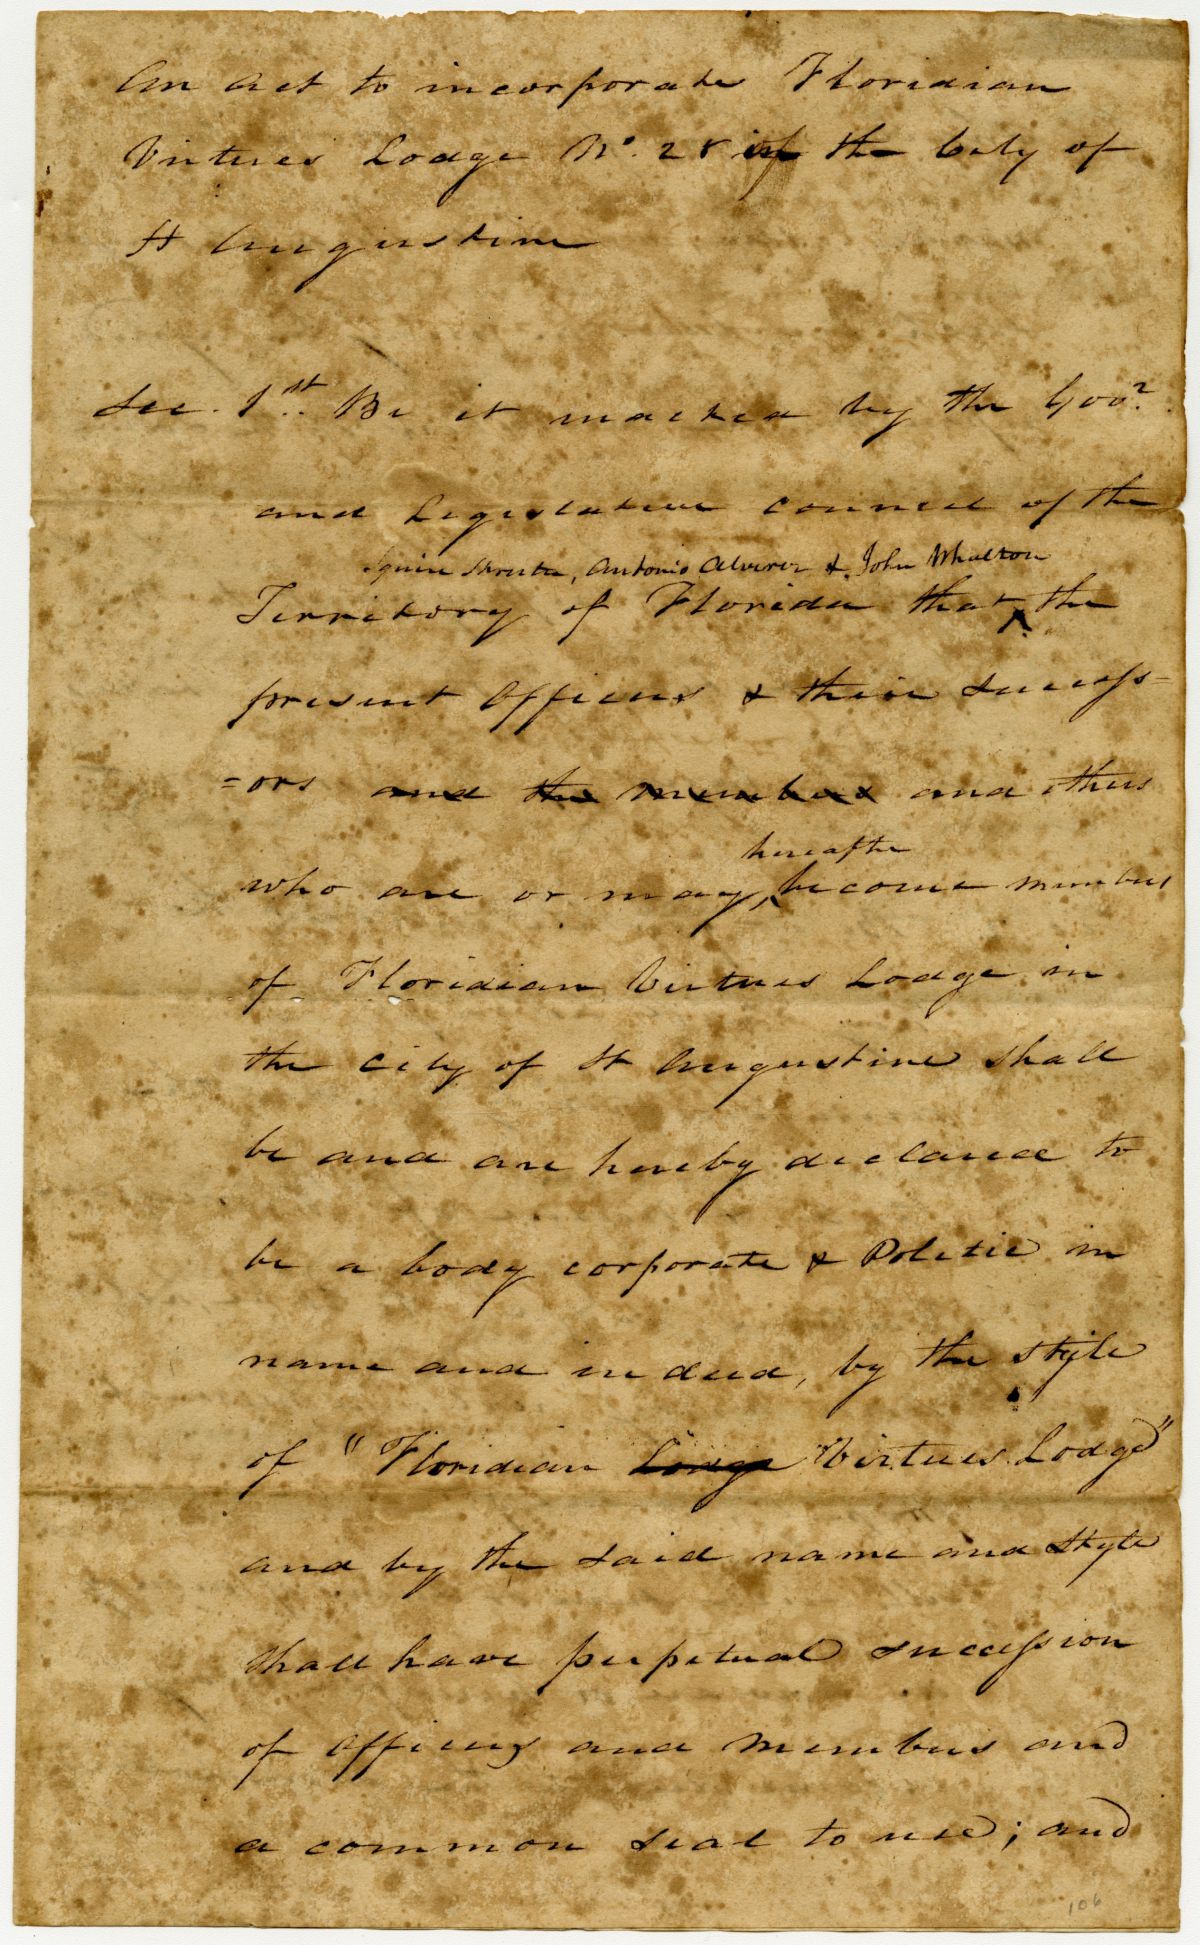 An act to incorporate Floridian
Virtues Lodge No. 28 of the City of
St Augustine
Sec. 1st. Be it enacted by the Govr.
and Legislative council of the
Squire Streeter, Antonio Alverez & John Whalton
Territory of Florida that ^ the
present Officers & their success=
=ors and the members and others
hereafter
who are or may, ^ become members
of Floridian Virtues Lodge in
the City of St Augustine shall
be and are hereby declared to
be a body corporate & Politic in
name and in deed, by the style
of "Floridian Lodge Virtues Lodge"
and by the said name and style
shall have perpetual succession
of Officers and members and
a common seal to use; and
106